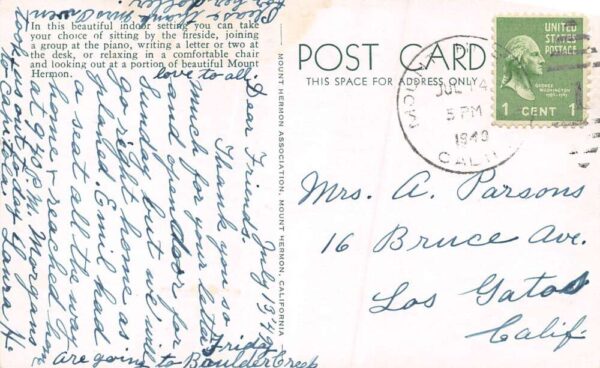 In this beautiful indoor setting you can take
your choice of sitting by the fireside, joining
a group at the piano, writing a letter or two at
the desk, or relaxing in a comfortable chair
and looking out a portion of beautiful Mount
Hermon.
MOUNT HERMON ASSOCIATION, MOUNT HERMON, CALIFORNIA
POST CARD
THIS SPACE FOR ADDRESS ONLY
JUL 14
5 PM
1949
CALIF
UNITED
STATES
POSTAGE
GEORGE
WASHINGTON
1 CENT 1
Mrs. A. Parsons
16 Bruce Ave.
Los Gatos
Calif.
July 13, 49
Dear Friends,
Thank you so
much for your letter
and offendor for
Sunday but we will
go right home as
planned. Emil had
a seat all the way
home & reached home
at 9:40 P.M. Morgans
took us out to day
to Capitola. Laura H.
Friday
are going to Boulder Creek
love to all.
Please thank Mrs
for her dollar